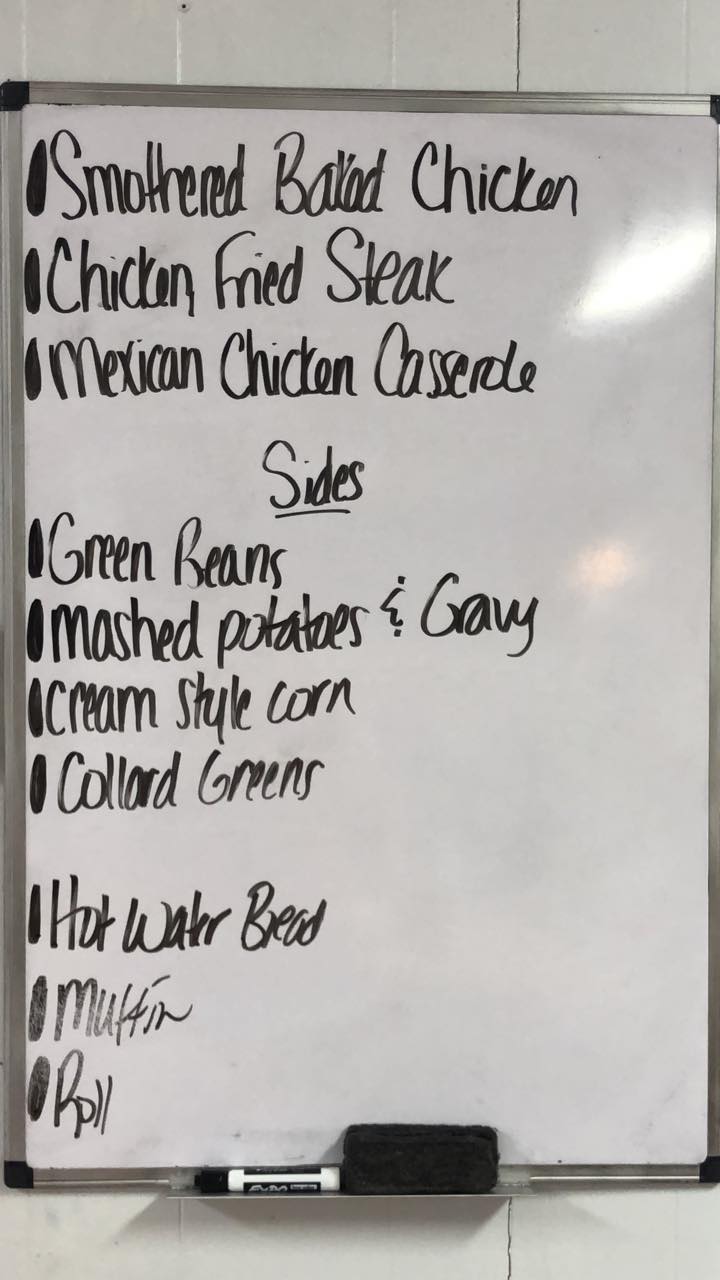 Smothered Baked Chicken
Chicken Fried Steak
Mexican Chicken Casserole
Sides
Green Beans
mashed potatoes & Gravy
cream style corn
Collard Greens
Hot Water Bread
Muffin
Roll
EXPO